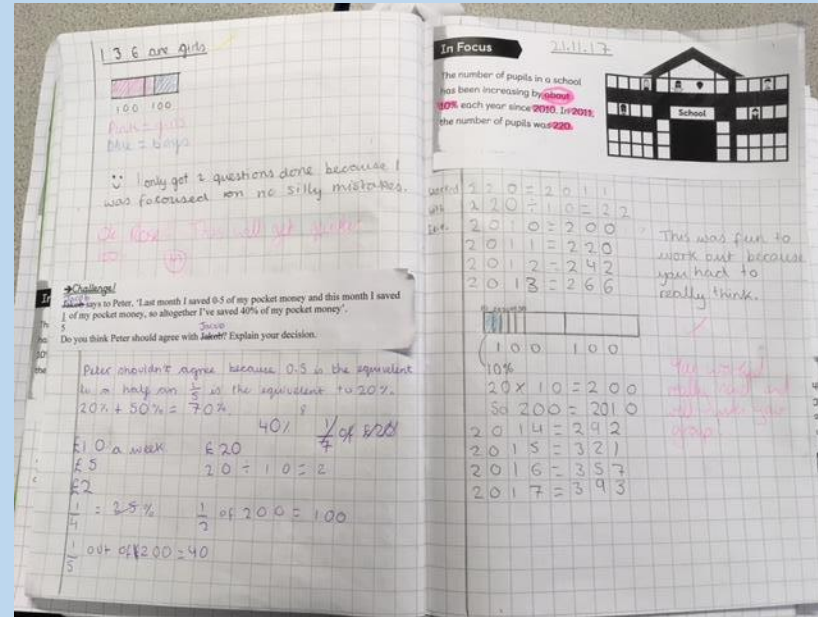 136 are girls
100 100
Pink = girls
blue = boys
I only got 2 questions done because I
was focoused on no silly mistakes.
→Challenge!
says to Peter, 'Last month I saved 0·5 of my pocket money and this month I saved
1 of my pocket money, so altogether I've saved 40% of my pocket money'.
5
Jacob
Do you think Peter should agree with Jakob? Explain your decision.
Peter shouldn't agree because 0.5 is the equivelent
to a half an 1/5 is the equivelent to 20%.
20% + 50% = 70%
40%
£10 a week £20
£5 20 ÷ 10 = 2
£2
1/4 = 25% 1/2 of 200 = 100
1/5 out of £200 = 40
In Focus
21.11.17
The number of pupils in a school
has been increasing by about
10% each year since 2010. In 2011,
the number of pupils was 220.
School
worked
with
220 = 2011
220 ÷ 10 = 22
2010 = 200
2011 = 220
2012 = 242
2013 = 266
This was fun to
work out because
you had to
really think.
100 100
10%
20 x 10 = 200
So 200 = 2010
2014 = 292
2015 = 321
2016 = 357
2017 = 393